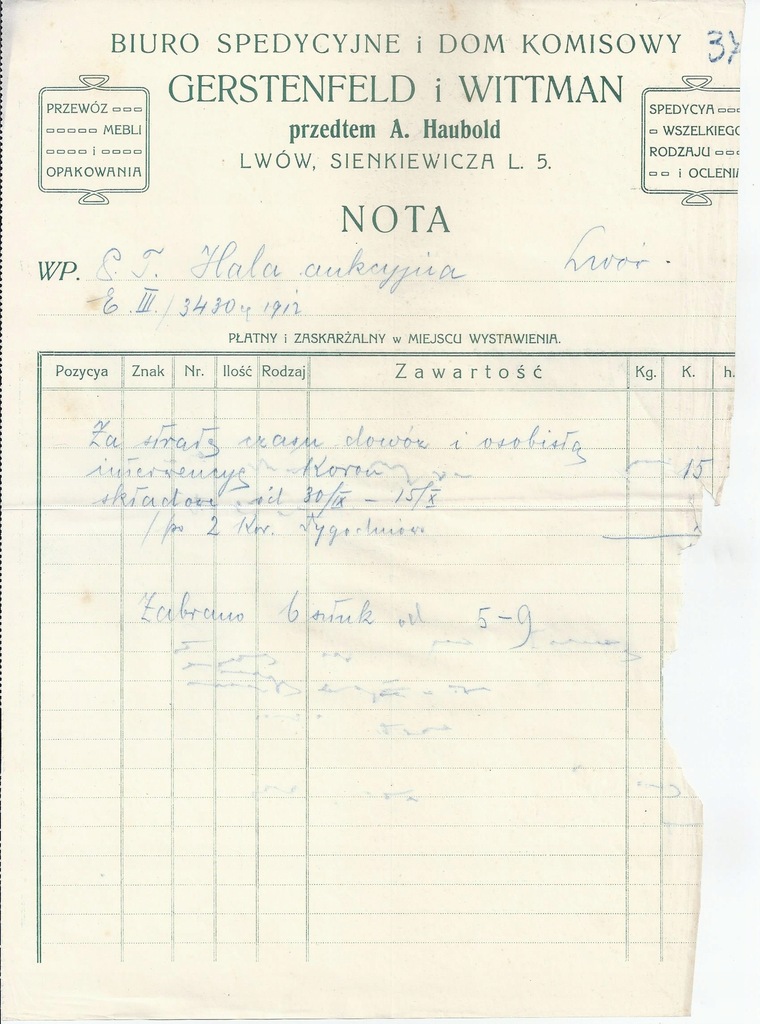 37
BIURO SPEDYCYJNE i DOM KOMISOWY
GERSTENFELD i WITTMAN
przedtem A. Haubold
LWÓW, SIENKIEWICZA L. 5.
PRZEWÓZ
MEBLI
i
OPAKOWANIA
SPEDYCYA
WSZELKIEGO
RODZAJU
i OCLENI
NOTA
WP. S. T. Hala aukcyjna Lwów.
E. III./3430 1912
PŁATNY i ZASKARŻALNY w MIEJSCU WYSTAWIENIA.
Pozycya Znak Nr. Ilość Rodzaj Zawartość Kg. K. h.
Za stratę czasu dowóz i osobistą
interwencyę Koron 15
składowe od 30/IX – 15/X
/po 2 Kor. Tygodniowo
Zabrano 6 sztuk od 5-9